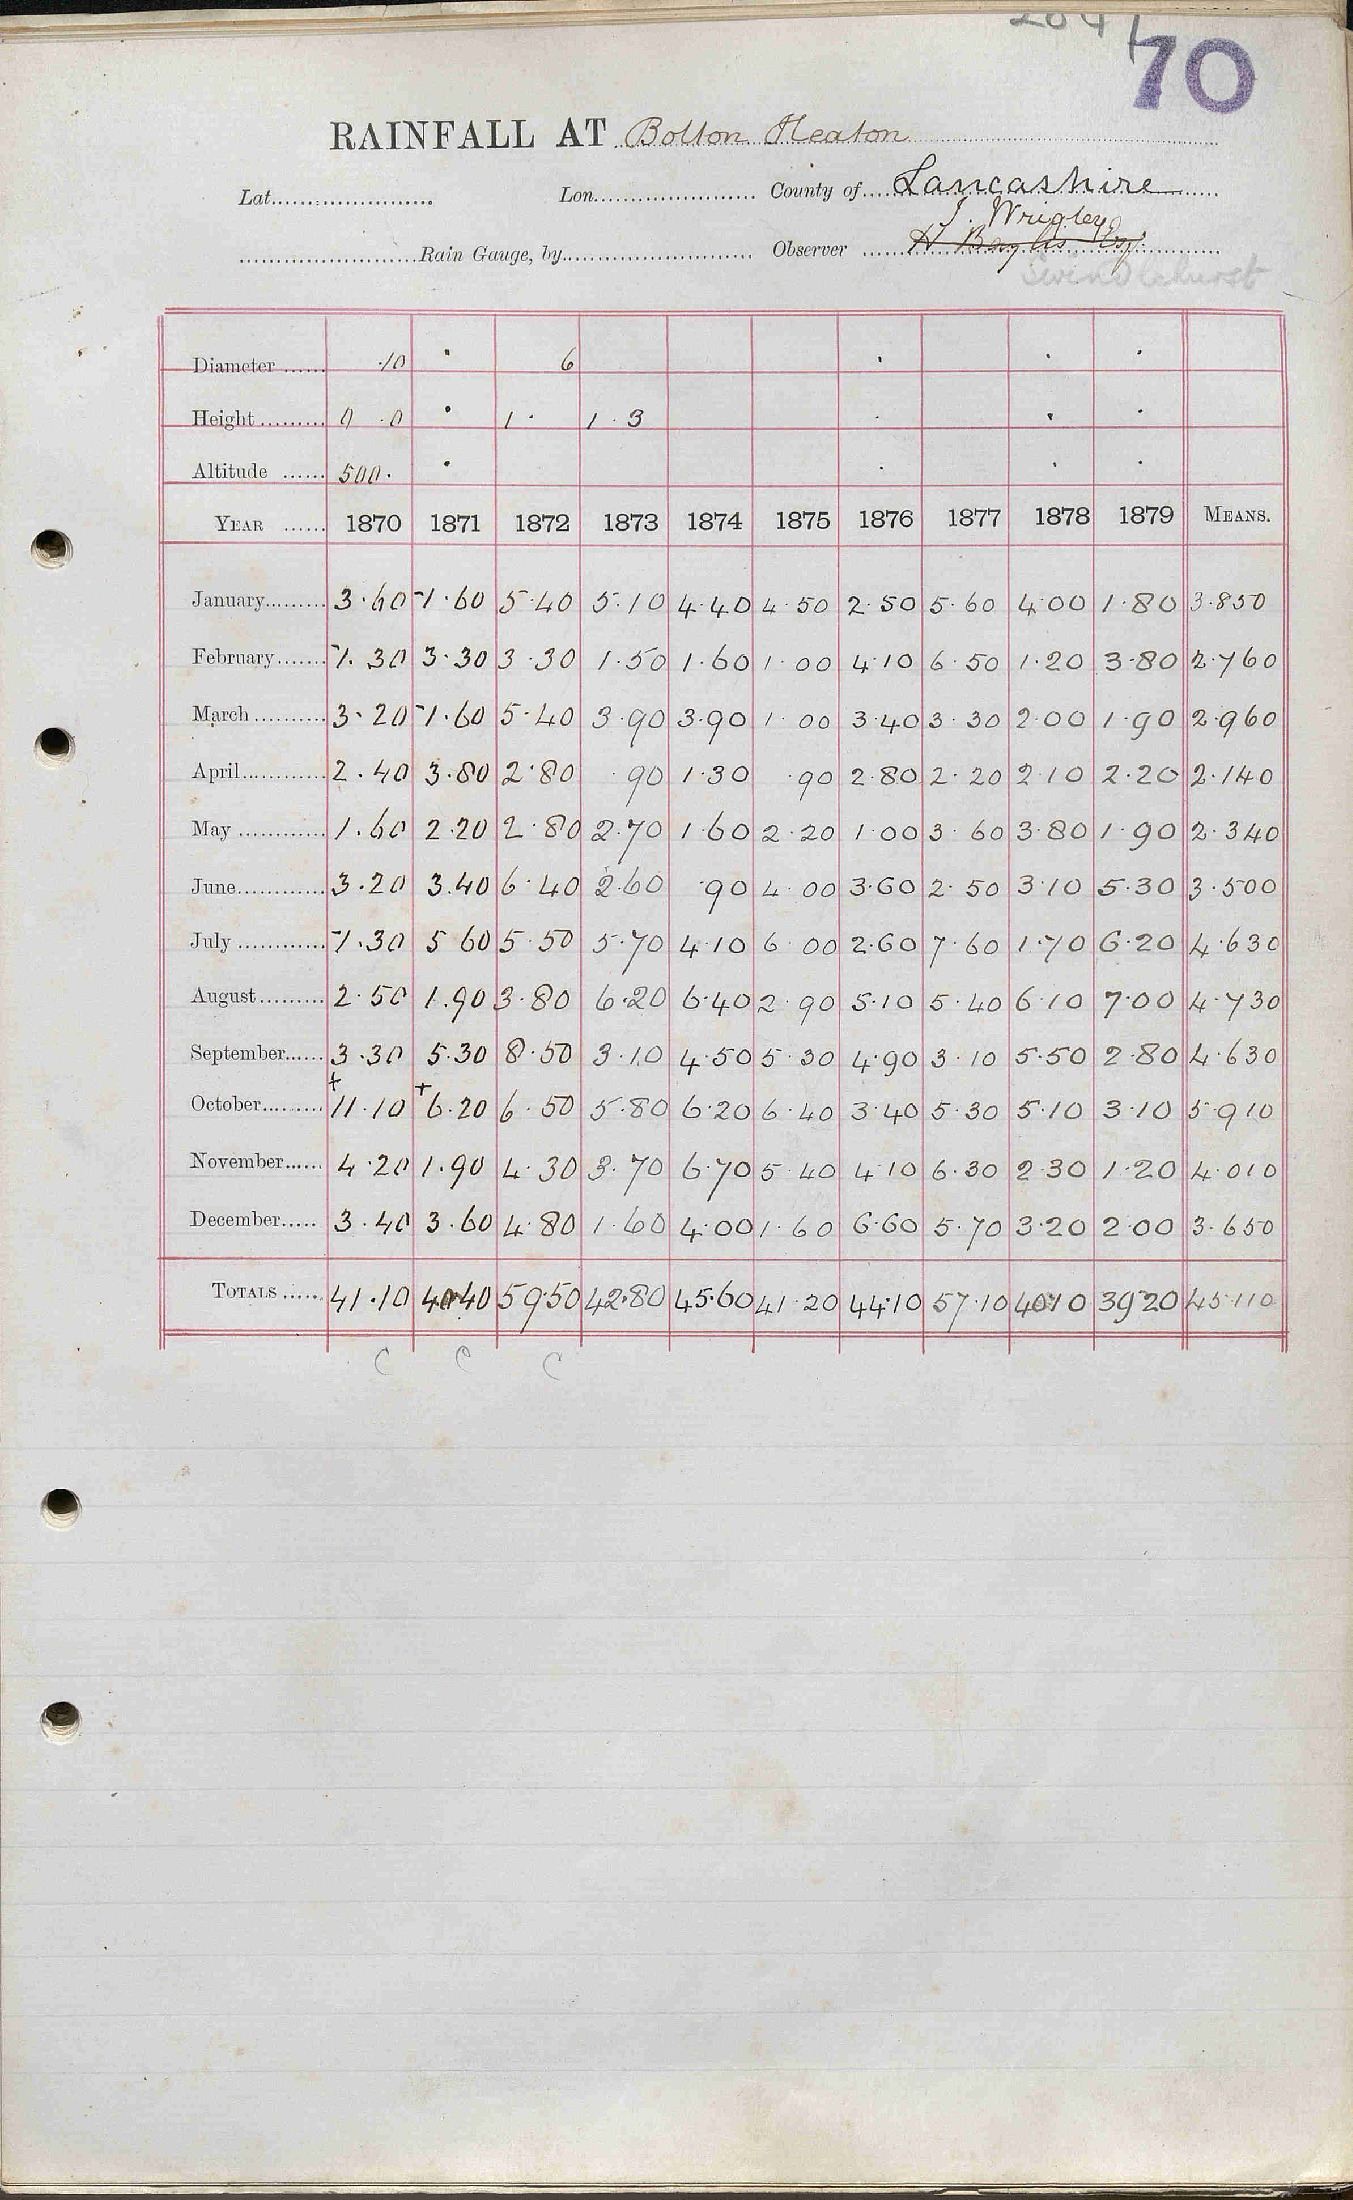 264
70
RAINFALL AT Bolton Heaton
Lat. Lon. County of Lancashire
J. Wrigley
Rain Gauge, by Observer H Baylis Esq.
Swindlehurst
Diameter 10 · 6 · · ·
Height 0 · 0 · 1 · 1 · 3 · · ·
Altitude 500 · · · · ·
YEAR 1870 1871 1872 1873 1874 1875 1876 1877 1878 1879 MEANS.
January 3.60 1.60 5.40 5.10 4.40 4.50 2.50 5.60 4.00 1.80 3.850
February 1.30 3.30 3.30 1.50 1.60 1.00 4.10 6.50 1.20 3.80 2.760
March 3.20 1.60 5.40 3.90 3.90 1.00 3.40 3.30 2.00 1.90 2.960
April 2.40 3.80 2.80 .90 1.30 .90 2.80 2.20 2.10 2.20 2.140
May 1.60 2.20 2.80 2.70 1.60 2.20 1.00 3.60 3.80 1.90 2.340
June 3.20 3.40 6.40 2.60 .90 4.00 3.60 2.50 3.10 5.30 3.500
July 1.30 5.60 5.50 5.70 4.10 6.00 2.60 7.60 1.70 6.20 4.630
August 2.50 1.90 3.80 6.20 6.40 2.90 5.10 5.40 6.10 7.00 4.730
September 3.30 5.30 8.50 3.10 4.50 5.30 4.90 3.10 5.50 2.80 4.630
October + 11.10 + 6.20 6.50 5.80 6.20 6.40 3.40 5.30 5.10 3.10 5.910
November 4.20 1.90 4.30 3.70 6.70 5.40 4.10 6.30 2.30 1.20 4.010
December 3.40 3.60 4.80 1.60 4.00 1.60 6.60 5.70 3.20 2.00 3.650
TOTALS 41.10 40.40 59.50 42.80 45.60 41.20 44.10 57.10 40.10 39.20 45.110
C C C